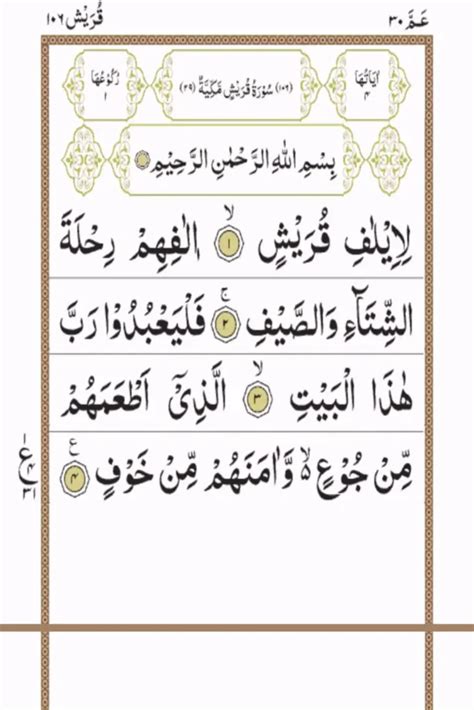 عَمَّ ٣٠ قُرَيْش ١٠٦
اٰيَاتُهَا ٤ (١٠٦) سُوْرَةُ قُرَيْشٍ مَّكِّيَّةٌ (٢٩) رُكُوْعُهَا ١
بِسْمِ اللهِ الرَّحْمٰنِ الرَّحِيْمِ
لِاِيْلٰفِ قُرَيْشٍ ۙ ١ اٖلٰفِهِمْ رِحْلَةَ
الشِّتَآءِ وَالصَّيْفِ ۚ ٢ فَلْيَعْبُدُوْا رَبَّ
هٰذَا الْبَيْتِ ۙ ٣ الَّذِىْٓ اَطْعَمَهُمْ
مِّنْ جُوْعٍ ۙ۬ وَّاٰمَنَهُمْ مِّنْ خَوْفٍ ٤ ع
١ ع ٤ ٣١